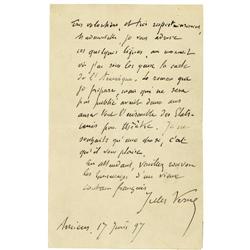 Très volontiers, et très respectueusement,
Mademoiselle, je vous adresse
ces quelques lignes, au moment
où j'ai sous les yeux la carte
de l'Amérique. Le roman que
je prépare, mais qui ne sera
pas publié avant deux ans
aura tout l'ensemble des États
Unis pour théâtre. Je ne
souhaite qu'une chose, c'est
qu'il vous plaise.
En attendant, veuillez recevoir
les hommages d'un vieux
conteur français
Jules Verne
Amiens, 17 97